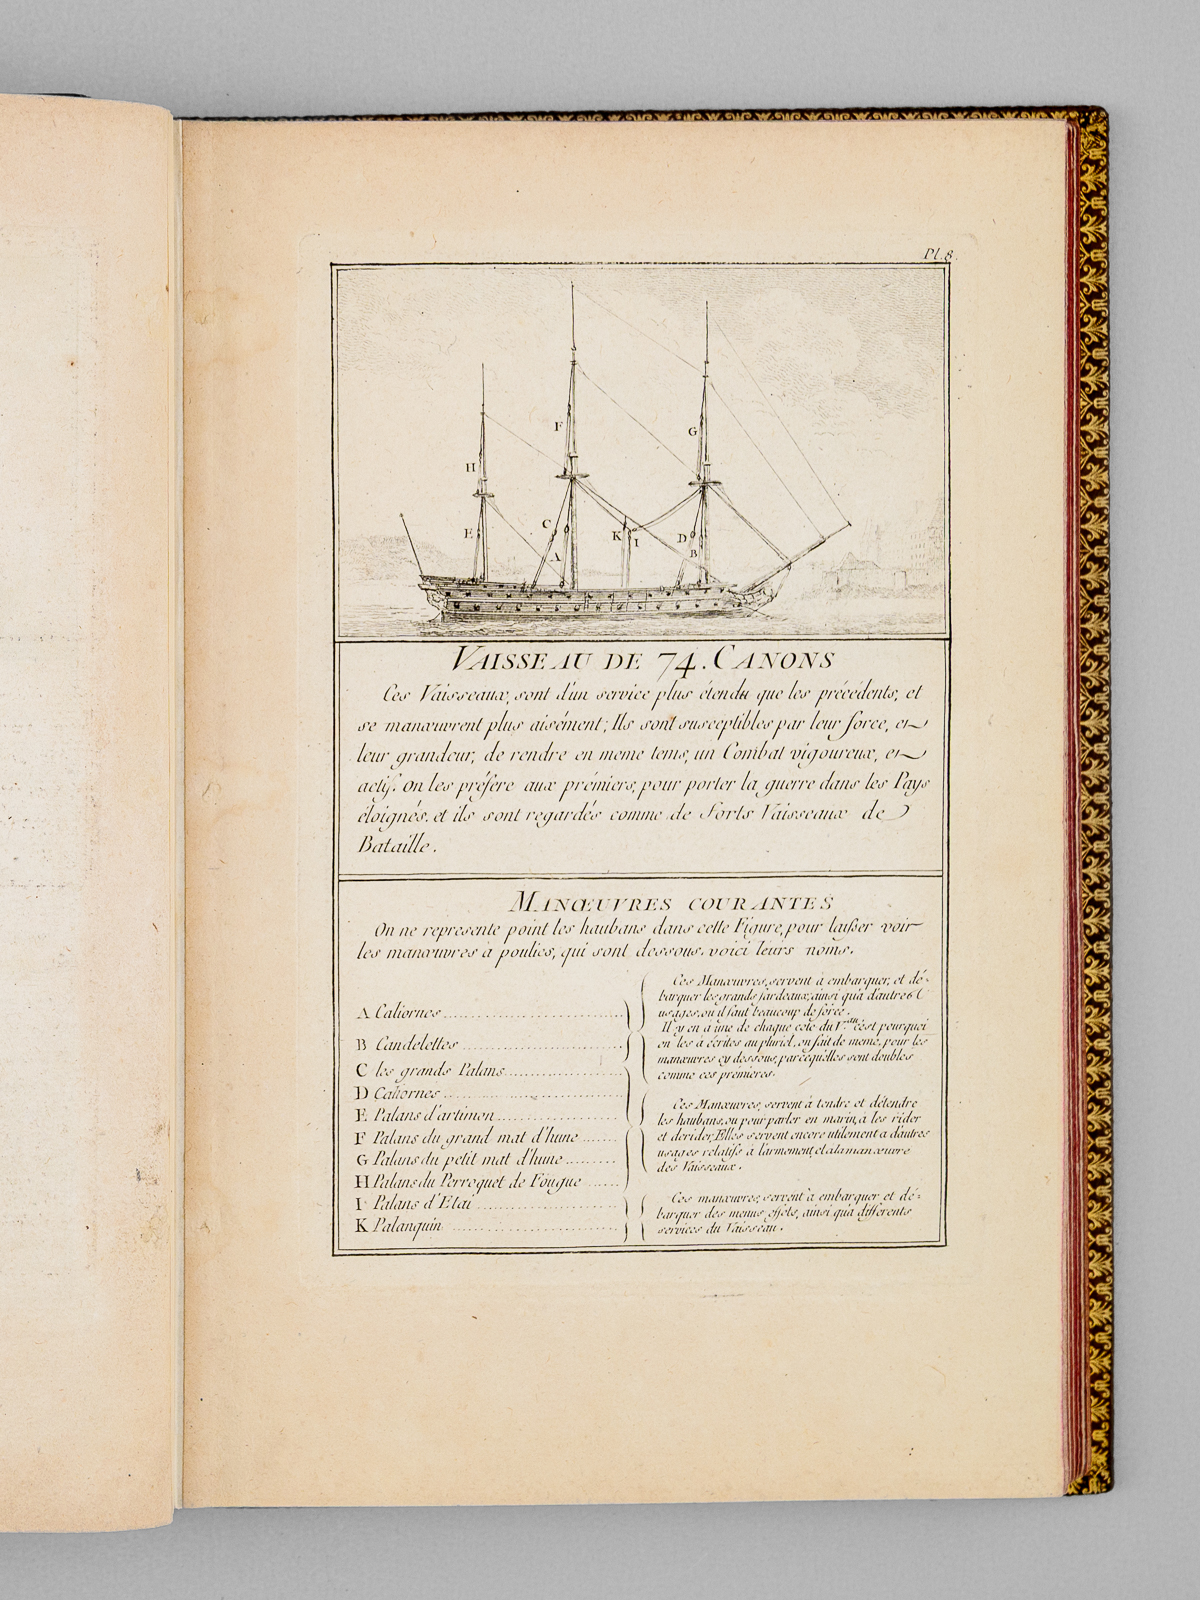 Pl. 8.
H
F
G
E
C
A
K
I
D
B
VAISSEAU DE 74. CANONS
Ces Vaisseaux, sont d'un service plus étendu que les précédents, et
se manœuvrent plus aisément; Ils sont susceptibles par leur force, et
leur grandeur, de rendre en meme tems, un Combat vigoureux, et
actif. on les préfere aux prémiers, pour porter la guerre dans les Pays
éloignés. et ils sont regardés comme de Forts Vaisseaux de
Bataille.
MANŒUVRES COURANTES
On ne represente point les haubans dans cette Figure, pour laisser voir
les manœuvres à poulies, qui sont dessous. voici leurs noms.
A Caliornes
B Candelettes
C les grands Palans
D Caliornes
E Palans d'artimon
F Palans du grand mat d'hune
G Palans du petit mat d'hune
H Palans du Perroquet de Fougue
I Palans d'Etai
K Palanquin
Ces Manœuvres, servent à embarquer, et dé-
barquer les grands fardeaux, ainsi qu'a d'autres
usages, ou il faut beaucoup de force.
Il y en à une de chaque coté du V.eau c'est pourquoi
on les à écrites au pluriel, on fait de meme, pour les
manœuvres cy dessous, parcequ'elles sont doubles
comme ces prémieres.
Ces Manœuvres, servent à tendre et détendre
les haubans, ou pour parler en marin, à les rider
et derider, Elles servent encore utilement a d'autres
usages relatifs à l'armement, et a la manœuvre
des Vaisseaux.
Ces manœuvres, servent à embarquer et dé-
barquer des menus effets, ainsi qu'a differents
services du Vaisseau.